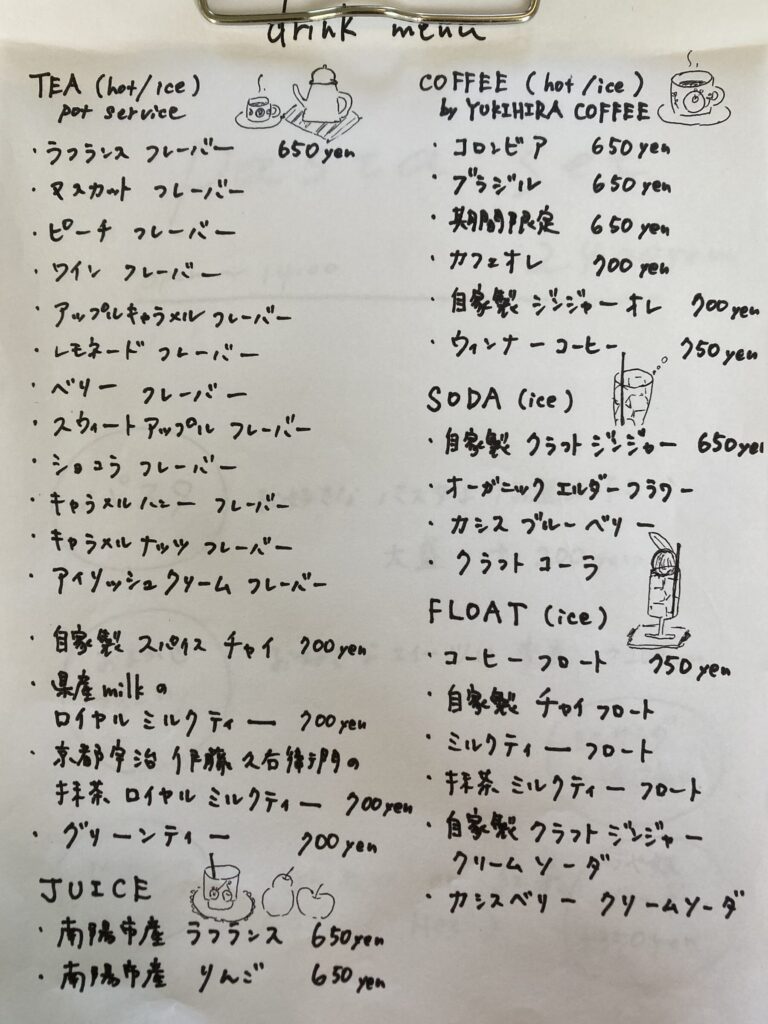 drink menu
TEA (hot/ice)
pot service
・ラフランス フレーバー 650yen
・マスカット フレーバー
・ピーチ フレーバー
・ワイン フレーバー
・アップルキャラメル フレーバー
・レモネード フレーバー
・ベリー フレーバー
・スウィートアップル フレーバー
・ショコラ フレーバー
・キャラメルハニー フレーバー
・キャラメルナッツ フレーバー
・アイリッシュクリーム フレーバー
・自家製 スパイス チャイ 700yen
・県産milkの
ロイヤル ミルクティー 700yen
・京都宇治 伊藤久右衛門の
抹茶 ロイヤル ミルクティー 700yen
・グリーンティー 700yen
JUICE
・南陽市産 ラフランス 650yen
・南陽市産 りんご 650yen
COFFEE (hot/ice)
by YUKIHIRA COFFEE
・コロンビア 650yen
・ブラジル 650yen
・期間限定 650yen
・カフェオレ 700yen
・自家製 ジンジャーオレ 700yen
・ウィンナーコーヒー 750yen
SODA (ice)
・自家製 クラフトジンジャー 650yen
・オーガニック エルダーフラワー
・カシス ブルーベリー
・クラフト コーラ
FLOAT (ice)
・コーヒーフロート 750yen
・自家製 チャイフロート
・ミルクティーフロート
・抹茶 ミルクティーフロート
・自家製 クラフトジンジャー
クリームソーダ
・カシスベリー クリームソーダ